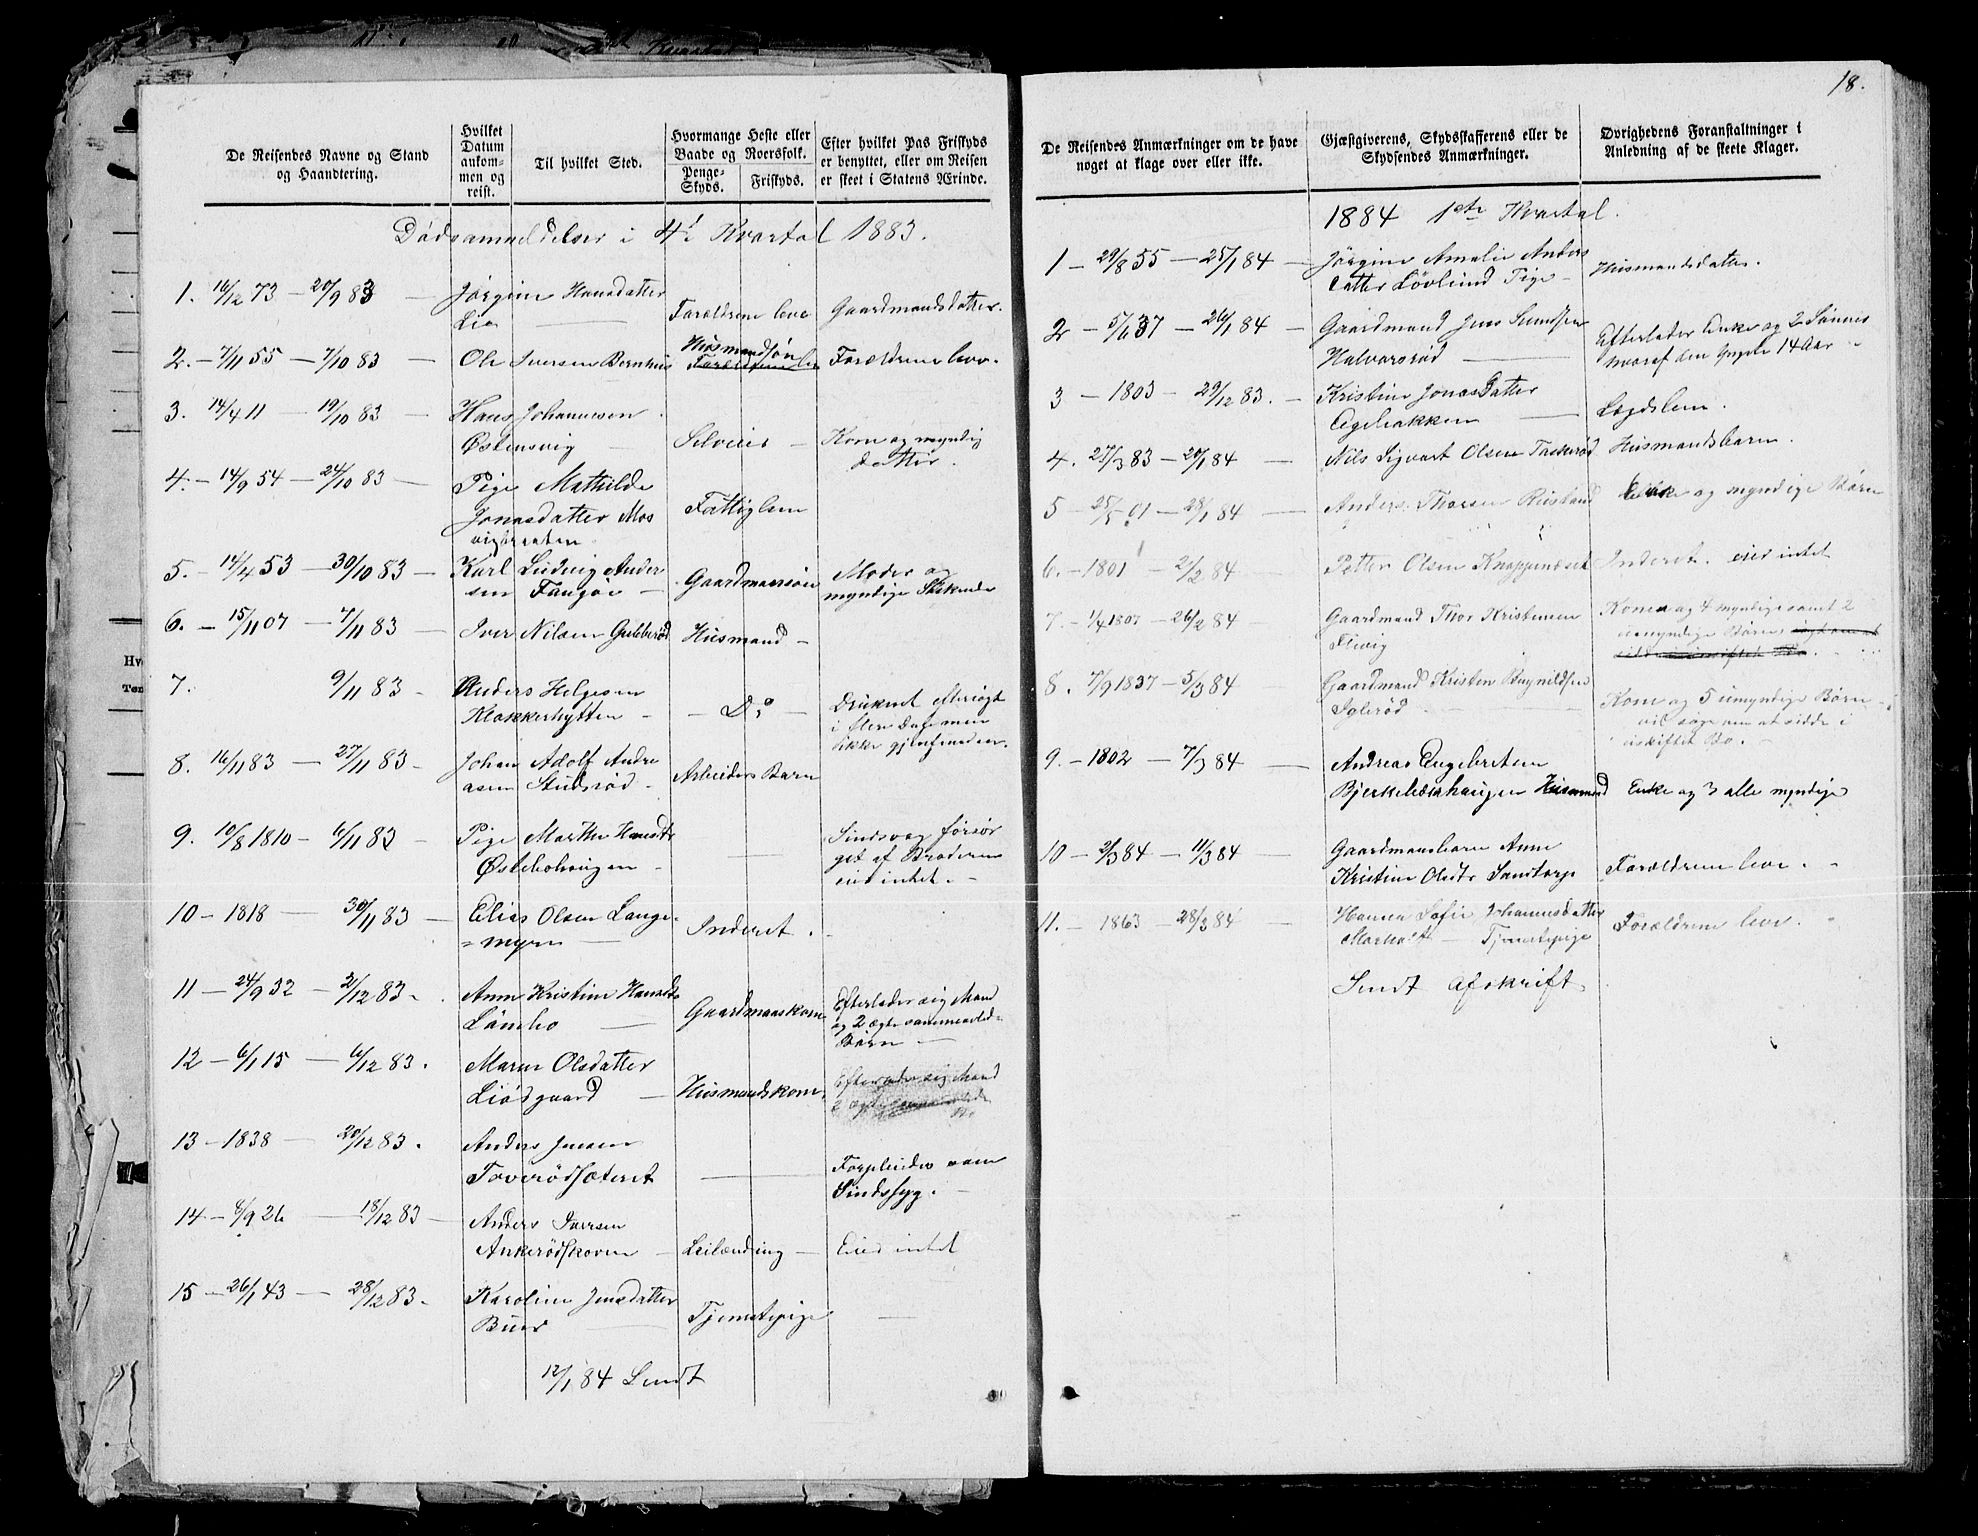 18.
De Reisendes Navne og Stand og Haandtering.
Hvilket Datum ankommen og reist.
Til hvilket Sted.
Hvormange Heste eller Baade og Roersfolk.
Penge-Skyds.
Friskyds.
Efter hvilket Pas Friskyds er benyttet, eller om Reisen er skeet i Statens Ærinde.
Dødsanmeldelser i 4' Kvartal 1883.
1. 16/12 73 — 20/9 83 — Jørgine Hansdatter
Lie — Forældrene leve Gaardmandsdatter.
2. — 7/11 55 — 7/10 83 — Ole Iversen Bernhus Husmandsøn Forældrene lev.
3. 14/4 11 — 19/10 83 — Hans Johannesen
Østensvig — Selveier — Kone og myndig
datter.
4. — 14/9 54 — 24/10 83 — Pige Mathilde
Jonasdatter Mos Fattiglem
5. — 14/4 53 — 30/10 83 — Karl Ludvig Ander
sen Fangøe — Gaardmansøn Moder og
myndige Søskende
6. — 15/11 07 — 7/11 83 — Iver Nilsen Gubberød Husmand —
7. 9/11 83 — Anders Helgesen
Klokkerhytten — — Do — Druknet eftersøgt
i flere Dage men
ikke gjenfunden.
8. 16/11 83 — 27/11 83 — Johan Adolf Andre
asen Studsrød — Arbeiders Barn
9. 10/8 1810 — 6/11 83 — Pige Marthe Hansdtr
Østebohaugen — Sindsvag forsør
get af Broderen
eied intet. —
10 — 1818 — 30/11 83 — Elias Olsen Lange-
=myren — Inderst.
11 — 24/9 32 — 2/12 83. Anne Kristine Hansdtr
Lamho — Gaardmanskone Efterlader sig Mand
og 2 ægte sammenavlede
Børn —
12 — 6/1 15 — 6/12 83. Maren Olsdatter
Liødgaard — Husmandskone Efterlader sig Mand
2 ægte
13 — 1838 — 20/12 83. Anders Jensen
Toverødsæteret — Forpleides som
Sindssyg. —
14 — 6/9 26 — 18/12 83 — Anders Iversen
Ankerødskoven — Leilænding — Eied intet
15 — 26/1 43 — 28/12 83. Karoline Jensdatter
Buer — Tjenestepige —
12/1 84 Sendt
De Reisendes Anmærkninger om de have noget at klage over eller ikke.
Gjæstgiverens, Skydsskafferens eller de Skydsendes Anmærkninger.
Øvrighedens Foranstaltninger i Anledning af de skeete Klager.
1884 1ste Kvartal.
1 — 29/8 55 — 25/1 84 — Jørgine Amalie Anders
datter Løvlund Pige — Husmandsdatter.
2 — 5/6 37 — 26/1 84 — Gaardmand Jens Sundsen
Halvorsrød — Efterlader Enke og 2 Sønner
hvoraf den yngste 14 Aar
3 — 1803 — 29/12 83. — Kristine Jonasdatter
Egebakken — Lægdslem.
4. 27/3 83 — 20/1 84 — Nils Sigvart Olsen Taskerød Husmandsbarn.
5 — 25/5 01 — 28/1 84 — Anders Thorsen Rusland Enke og myndige Børn
6. — 1801 — 2/2 84 — Petter Olsen Knappenæset Inderst. eied intet
7. — 1/4 1807 — 26/2 84 — Gaardmand Thor Kristensen
Flivig Kone og 4 myndige samt 2
umyndige Børn
8. 7/9 1837 — 5/3 84 Gaardmand Kristen Bugnildsen
Iglerød — Kone og 5 umyndige Børn
vil søge om at sidde i
uskiftet Bo. —
9. — 1802 — 7/3 84 — Andreas Engebretsen
Bjerkebækhaugen Husmand Enke og 3 alle myndige
10 — 2/3 84 — 11/3 84 — Gaardmansbarn Anne
Kristine Olsdtr Sandtorp Forældrene leve.
11. — 1863 — 28/3 84 Hanna Sofie Johannesdatter
Morholt — Tjenestepige Forældrene leve.
Sendt Afskrift